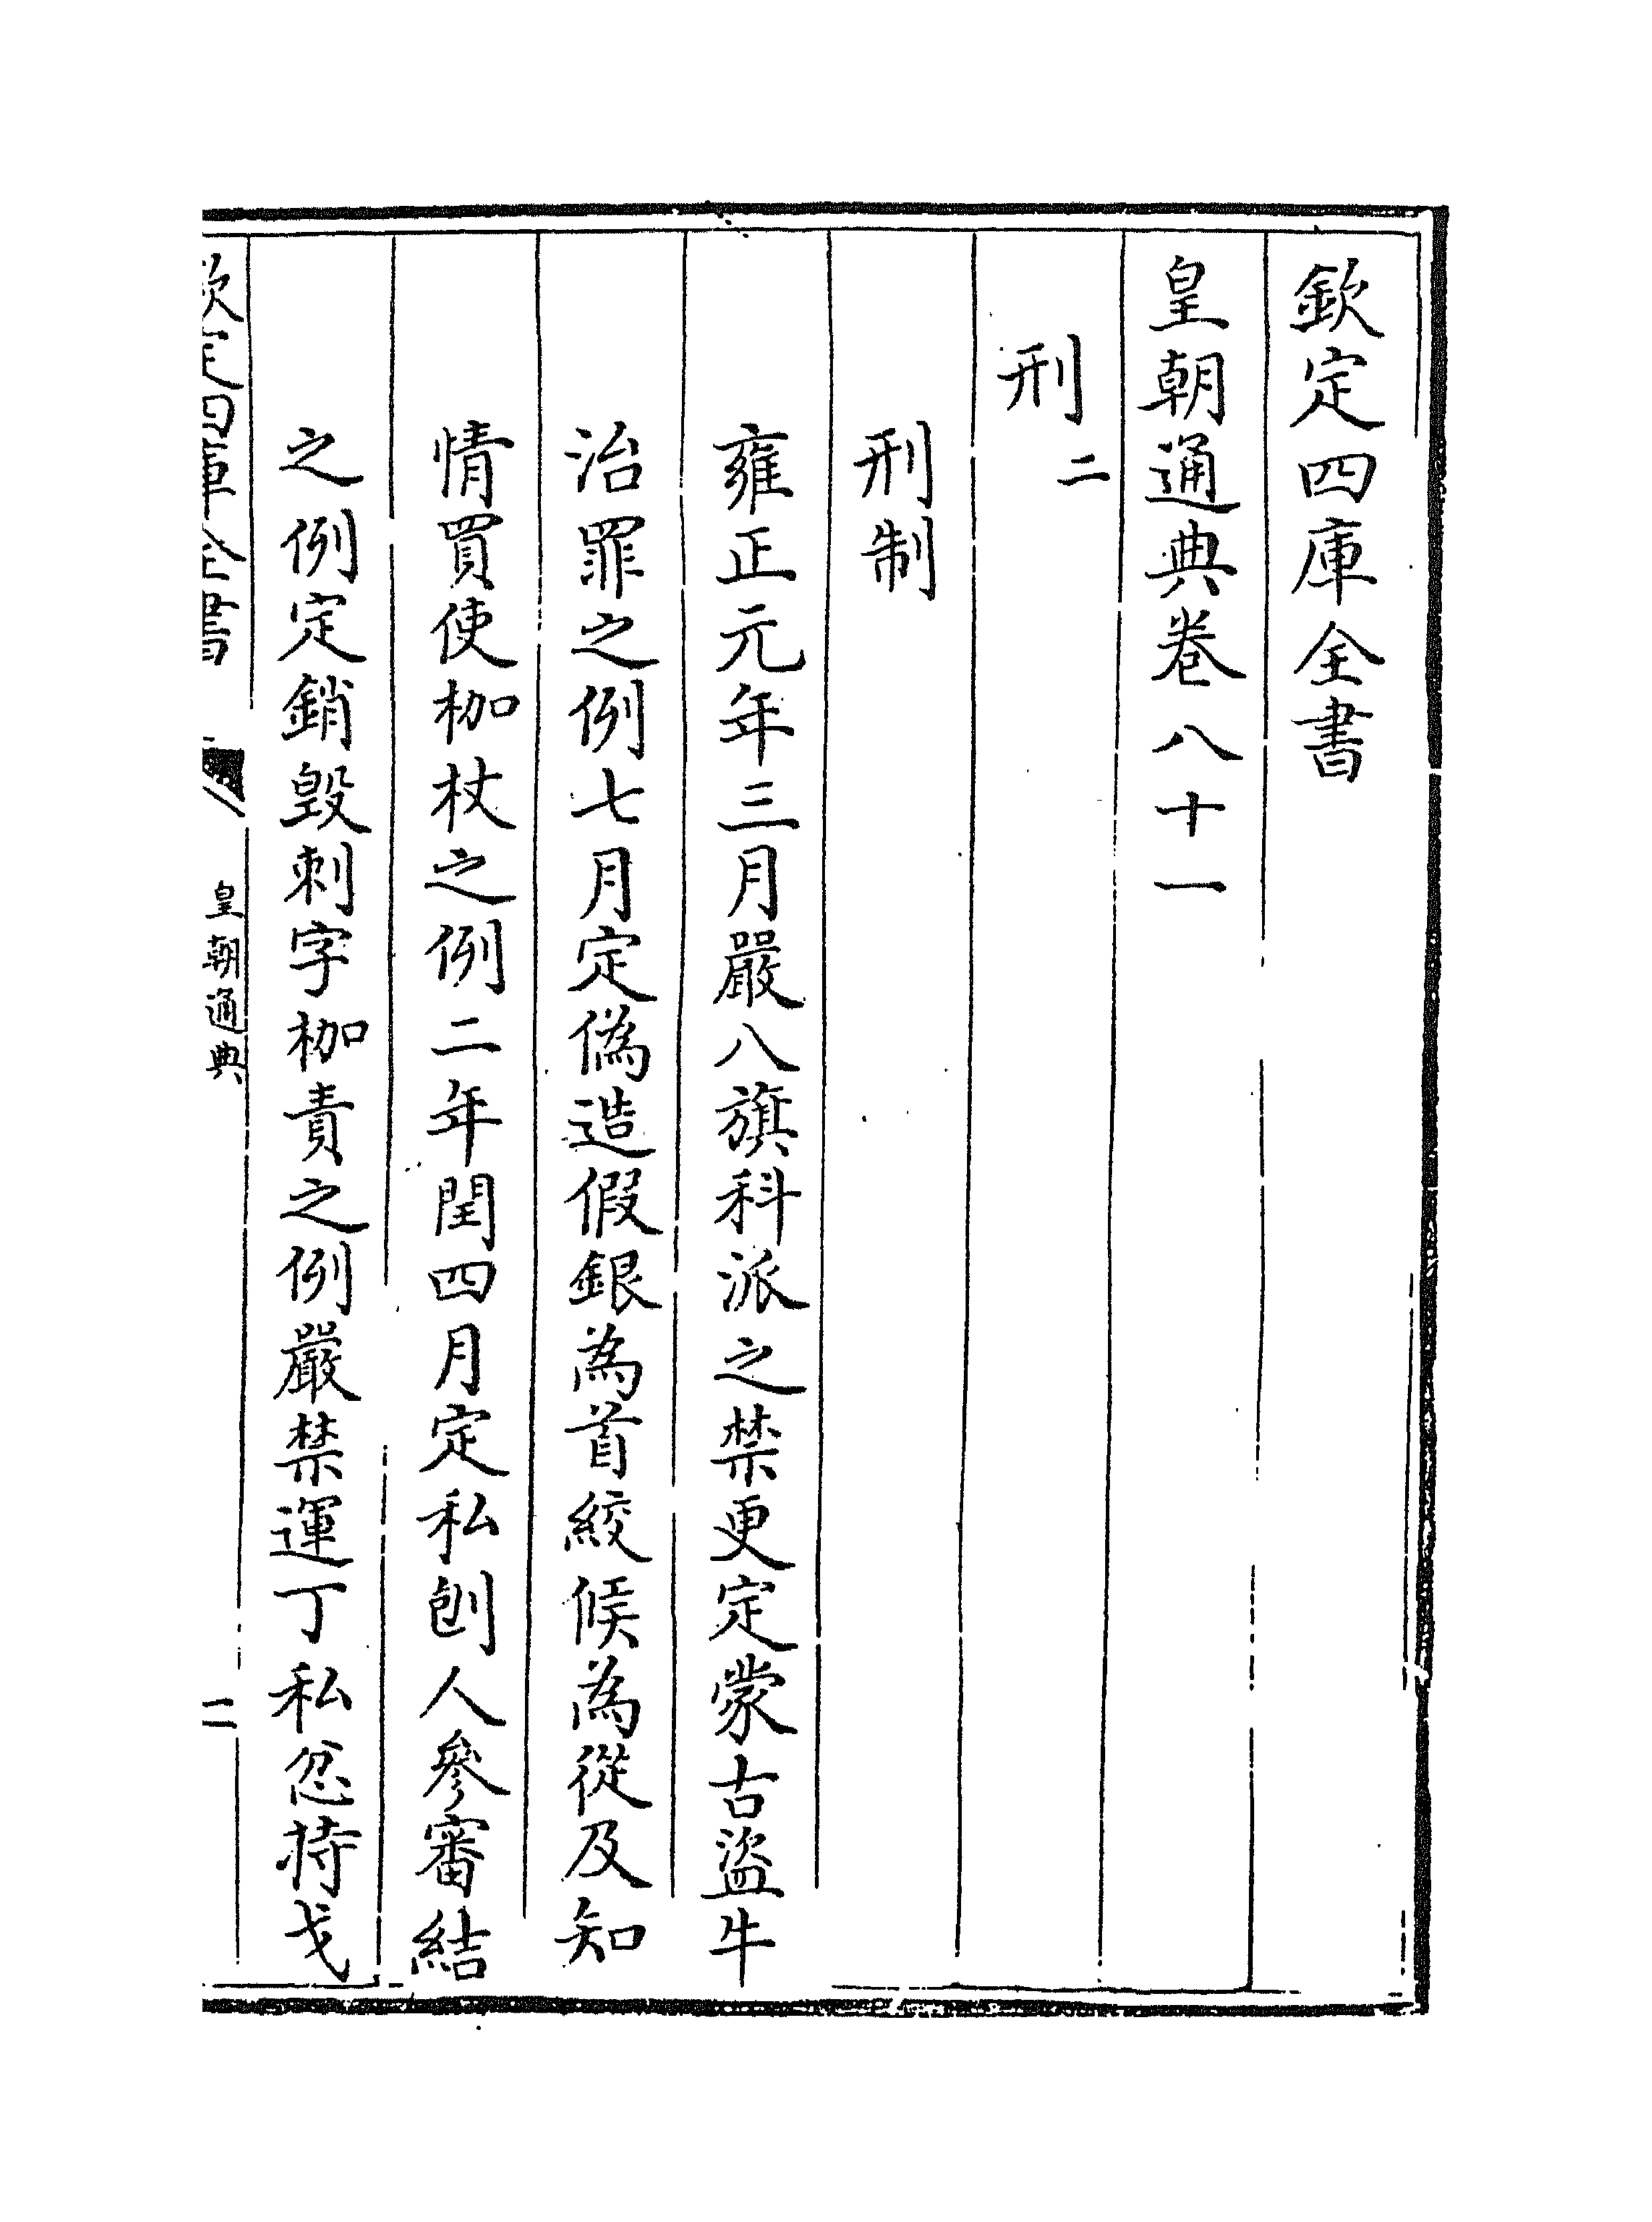 欽定四庫全書
皇朝通典卷八十一
刑二
刑制
雍正元年三月嚴八旗科派之禁更定蒙古盜牛
治罪之例七月定偽造假銀為首絞候為從及知
情買使枷杖之例二年閏四月定私刨人參審結
之例定銷毀刺字枷責之例嚴禁運丁私忿持戈
欽定四庫全書
皇朝通典